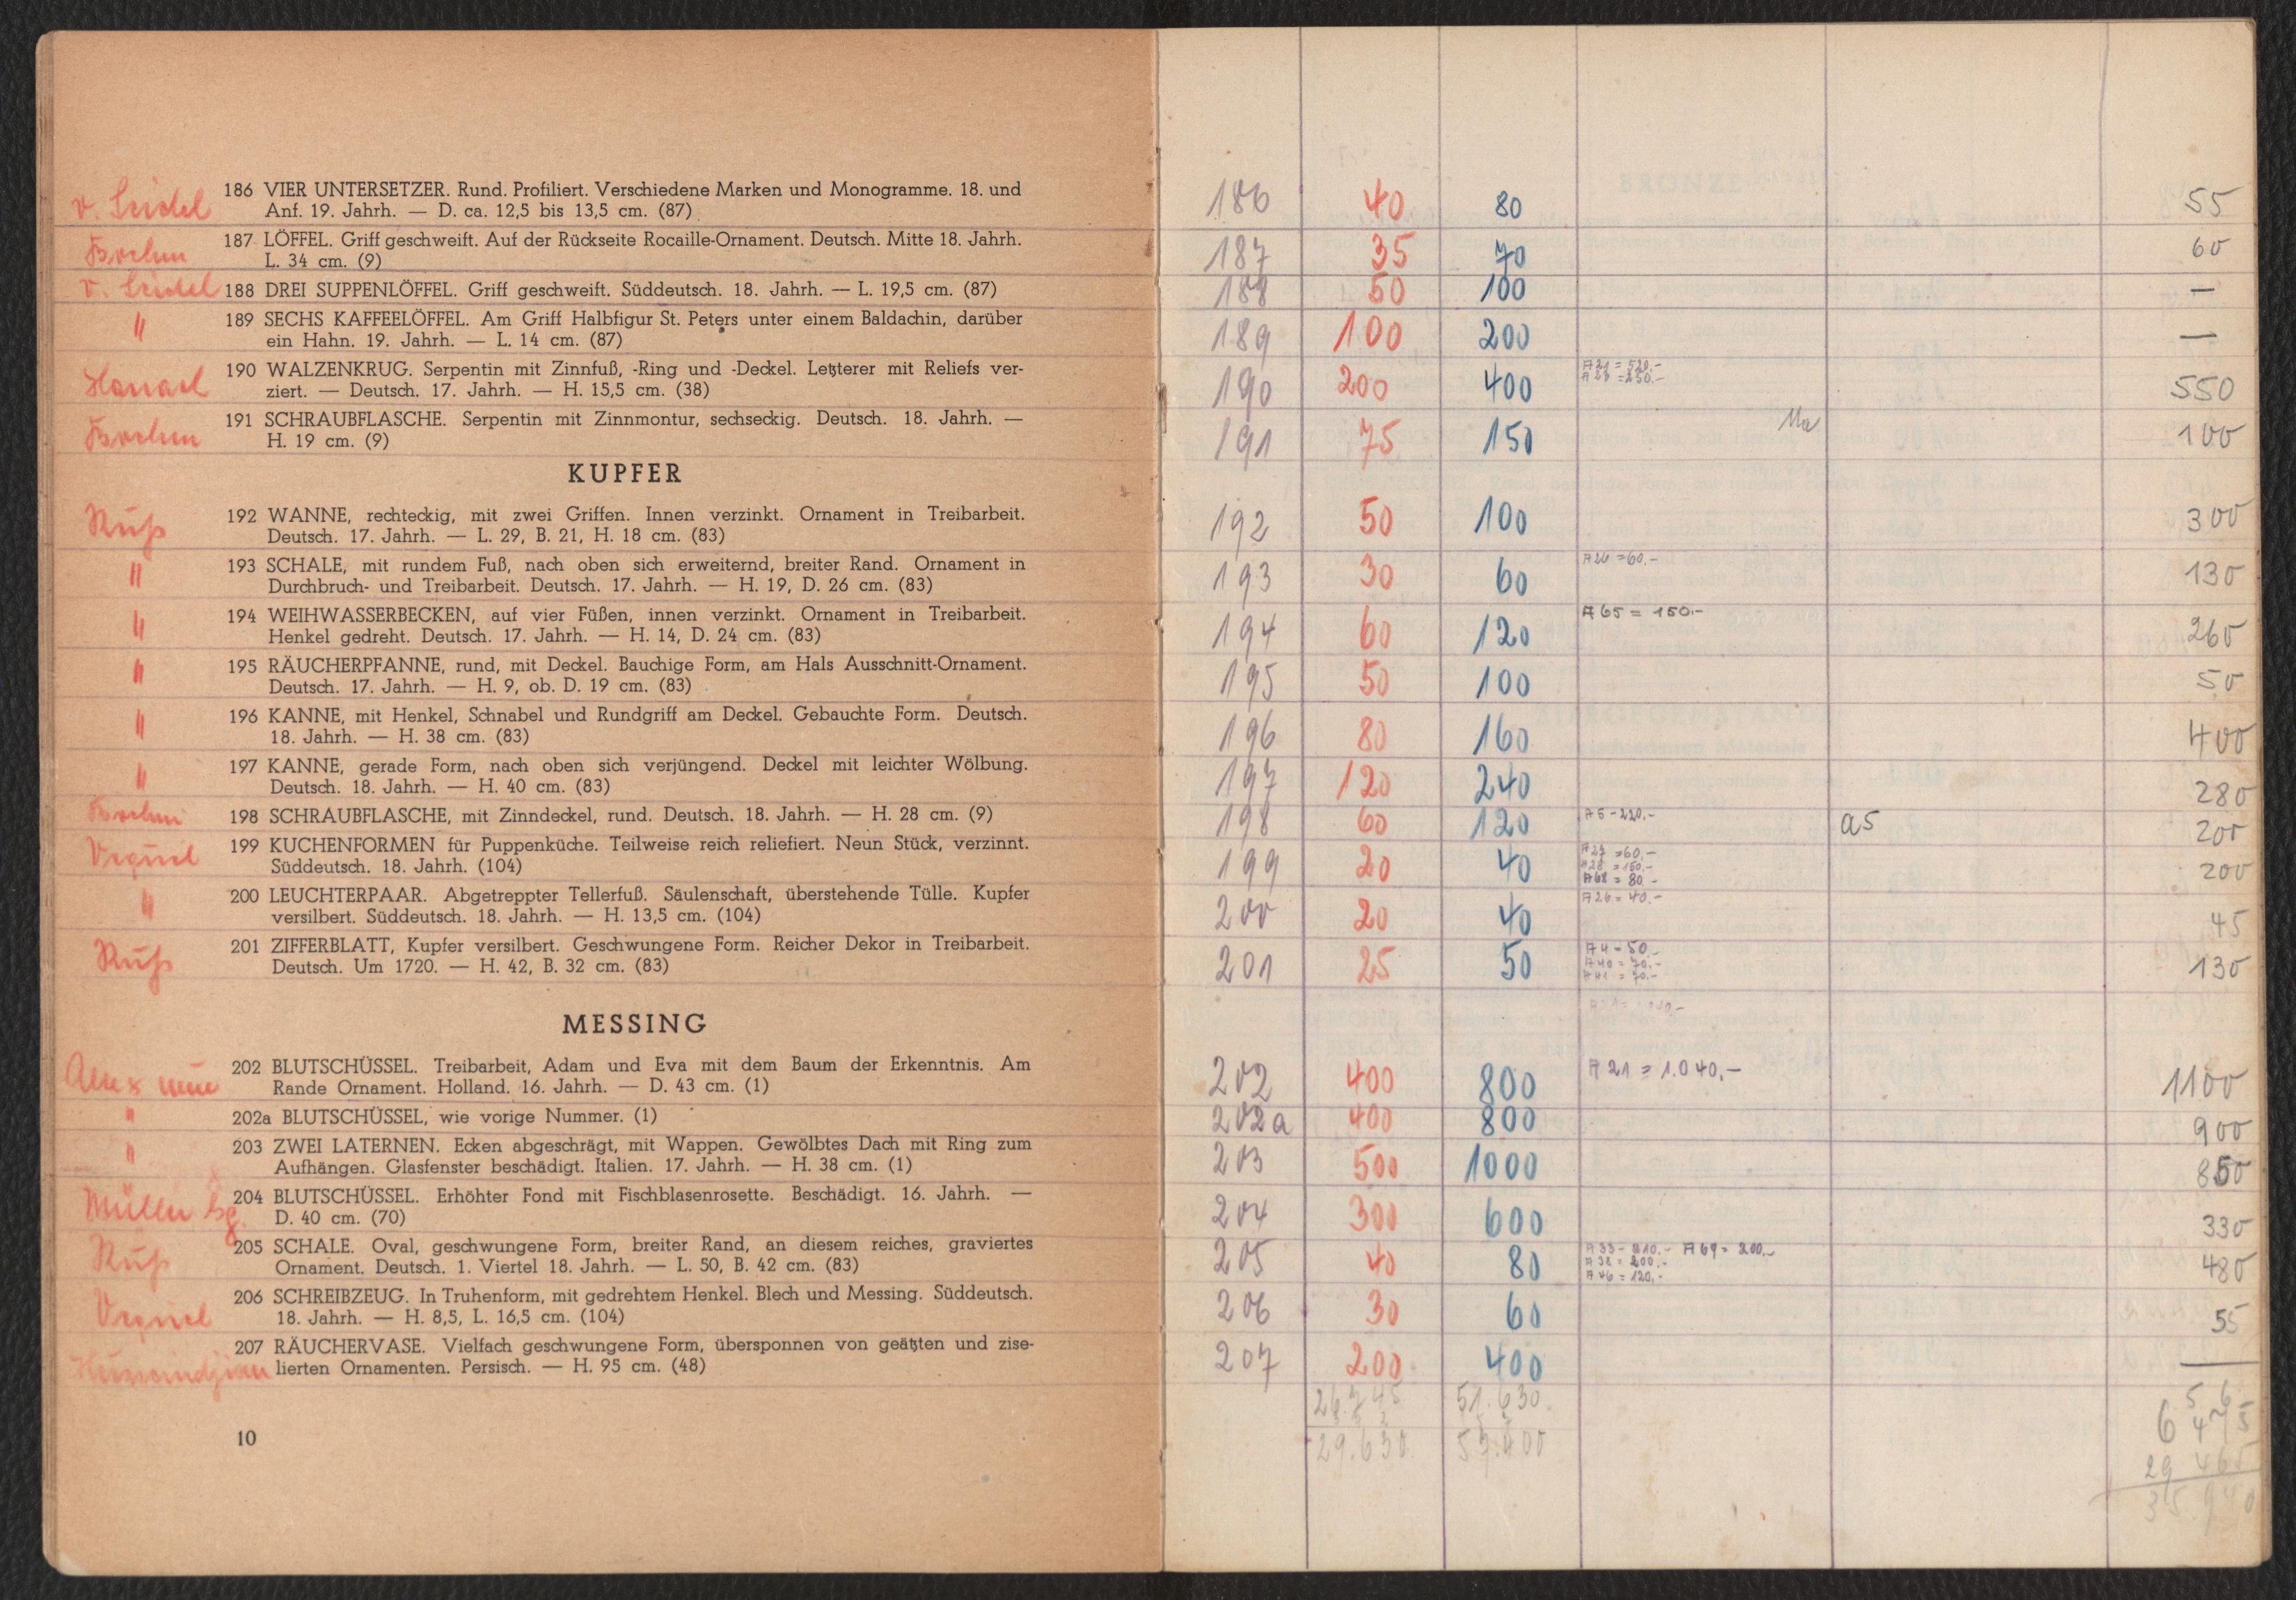 v. Seidel
186 VIER UNTERSETZER. Rund. Profiliert. Verschiedene Marken und Monogramme. 18. und
Anf. 19. Jahrh. — D. ca. 12,5 bis 13,5 cm. (87)
187 LÖFFEL. Griff geschweift. Auf der Rückseite Rocaille-Ornament. Deutsch. Mitte 18. Jahrh.
L. 34 cm. (9)
v. Seidel 188 DREI SUPPENLÖFFEL. Griff geschweift. Süddeutsch. 18. Jahrh. — L. 19,5 cm. (87)
" 189 SECHS KAFFEELÖFFEL. Am Griff Halbfigur St. Peters unter einem Baldachin, darüber
ein Hahn. 19. Jahrh. — L. 14 cm. (87)
190 WALZENKRUG. Serpentin mit Zinnfuß, -Ring und -Deckel. Letzterer mit Reliefs ver-
ziert. — Deutsch. 17. Jahrh. — H. 15,5 cm. (38)
191 SCHRAUBFLASCHE. Serpentin mit Zinnmontur, sechseckig. Deutsch. 18. Jahrh. —
H. 19 cm. (9)
KUPFER
Ruß 192 WANNE, rechteckig, mit zwei Griffen. Innen verzinkt. Ornament in Treibarbeit.
Deutsch. 17. Jahrh. — L. 29, B. 21, H. 18 cm. (83)
" 193 SCHALE, mit rundem Fuß, nach oben sich erweiternd, breiter Rand. Ornament in
Durchbruch- und Treibarbeit. Deutsch. 17. Jahrh. — H. 19, D. 26 cm. (83)
" 194 WEIHWASSERBECKEN, auf vier Füßen, innen verzinkt. Ornament in Treibarbeit.
Henkel gedreht. Deutsch. 17. Jahrh. — H. 14, D. 24 cm. (83)
" 195 RÄUCHERPFANNE, rund, mit Deckel. Bauchige Form, am Hals Ausschnitt-Ornament.
Deutsch. 17. Jahrh. — H. 9, ob. D. 19 cm. (83)
" 196 KANNE, mit Henkel, Schnabel und Rundgriff am Deckel. Gebauchte Form. Deutsch.
18. Jahrh. — H. 38 cm. (83)
" 197 KANNE, gerade Form, nach oben sich verjüngend. Deckel mit leichter Wölbung.
Deutsch. 18. Jahrh. — H. 40 cm. (83)
198 SCHRAUBFLASCHE, mit Zinndeckel, rund. Deutsch. 18. Jahrh. — H. 28 cm. (9)
Vequel 199 KUCHENFORMEN für Puppenküche. Teilweise reich reliefiert. Neun Stück, verzinnt.
Süddeutsch. 18. Jahrh. (104)
" 200 LEUCHTERPAAR. Abgetreppter Tellerfuß. Säulenschaft, überstehende Tülle. Kupfer
versilbert. Süddeutsch. 18. Jahrh. — H. 13,5 cm. (104)
Ruß 201 ZIFFERBLATT, Kupfer versilbert. Geschwungene Form. Reicher Dekor in Treibarbeit.
Deutsch. Um 1720. — H. 42, B. 32 cm. (83)
MESSING
202 BLUTSCHÜSSEL. Treibarbeit, Adam und Eva mit dem Baum der Erkenntnis. Am
Rande Ornament. Holland. 16. Jahrh. — D. 43 cm. (1)
" 202a BLUTSCHÜSSEL, wie vorige Nummer. (1)
" 203 ZWEI LATERNEN. Ecken abgeschrägt, mit Wappen. Gewölbtes Dach mit Ring zum
Aufhängen. Glasfenster beschädigt. Italien. 17. Jahrh. — H. 38 cm. (1)
Müller 204 BLUTSCHÜSSEL. Erhöhter Fond mit Fischblasenrosette. Beschädigt. 16. Jahrh. —
D. 40 cm. (70)
Ruß 205 SCHALE. Oval, geschwungene Form, breiter Rand, an diesem reiches, graviertes
Ornament. Deutsch. 1. Viertel 18. Jahrh. — L. 50, B. 42 cm. (83)
Vequel 206 SCHREIBZEUG. In Truhenform, mit gedrehtem Henkel. Blech und Messing. Süddeutsch.
18. Jahrh. — H. 8,5, L. 16,5 cm. (104)
207 RÄUCHERVASE. Vielfach geschwungene Form, übersponnen von geätzten und zise-
lierten Ornamenten. Persisch. — H. 95 cm. (48)
10
186 40 80 55
187 35 70 60
188 50 100 —
189 100 200 —
190 200 400 A 21 = 520.- 550
191 75 150 100
192 50 100 300
193 30 60 A 26 = 60.- 130
194 60 120 A 65 = 150.- 260
195 50 100 50
196 80 160 400
197 120 240 280
198 60 120 A 5 - 220.- a5 200
199 20 40 A 27 = 60.- 200
A 28 = 150.-
A 68 = 80.-
200 20 40 A 26 = 40.- 45
201 25 50 A 4 - 50.- 130
A 40 = 70.-
A 41 = 70.-
202 400 800 A 21 = 1.040,- 1100
202a 400 800 900
203 500 1000 850
204 300 600 330
205 40 80 A 33 - 210.- A 69 = 200.- 480
A 38 = 200.-
A 46 = 120.-
206 30 60 55
207 200 400 —
51.630
29.630